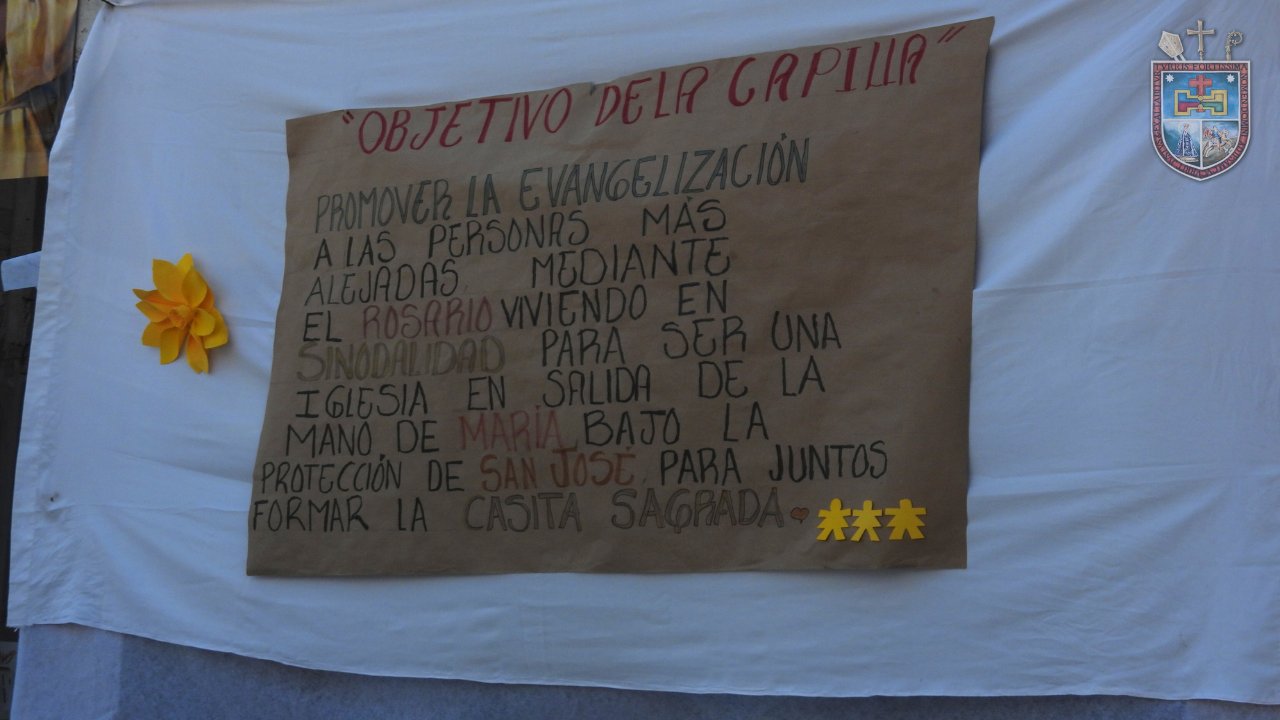 "OBJETIVO DE LA CAPILLA"
PROMOVER LA EVANGELIZACIÓN
A LAS PERSONAS MÁS
ALEJADAS, MEDIANTE
EL ROSARIO VIVIENDO EN
SINODALIDAD PARA SER UNA
IGLESIA EN SALIDA DE LA
MANO DE MARÍA, BAJO LA
PROTECCIÓN DE SAN JOSÉ, PARA JUNTOS
FORMAR LA CASITA SAGRADA